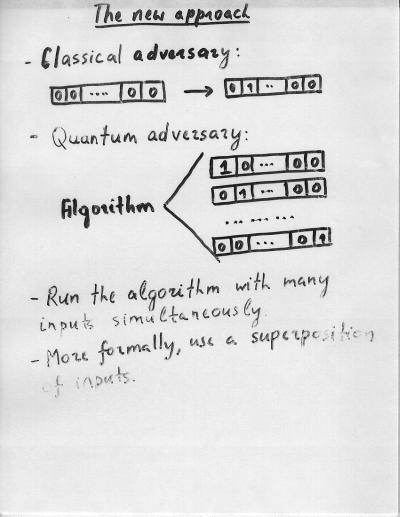 The new approach
- Classical adversary:
0 0 .... 0 0 → 0 1 .. 0 0
- Quantum adversary:
1 0 ... 0 0
0 1 ... 0 0
Algorithm
... ... ...
0 0 ... 0 1
- Run the algorithm with many
inputs simultaneously.
- More formally, use a superposition
of inputs.